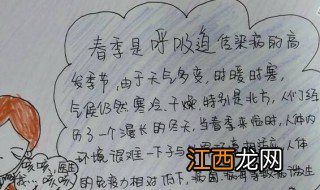 春季是呼吸道传染病的高
发季节,由于天气多变,时暖时寒,
气候仍然寒冷、干燥,特别是北方,人们经
历了一个漫长的冬天,当春季来临时,人体内
环境很难一下子与
的免疫力相对低下,病菌、病毒
咳咳,
咳咳
西西旅游网